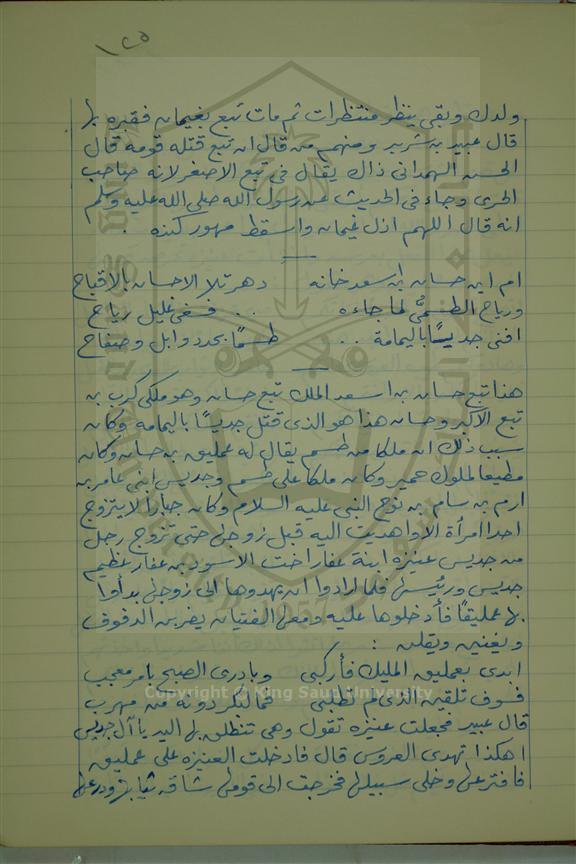 ١٢٥
ولدك وبقى ينظر منتظرات ثم مات تبع بغيمان فقبره بها
قال عبيد بن شريه ومنهم من قال ان تبع قتله قومه قال
الحسن الهمدانى ذاك يقال فى تبع الاصغر لانه صاحب
الحرى وجاء فى الحديث عن رسول الله صلى الله عليه وسلم
انه قال اللهم ازل غيمان واسقط مهور كنده .
ام اين حسان بن اسعد خانه دهر تلا الاحسان بالاقباح
ورياح الطسمى لما جاءه .. فشفى غليل رياح
افنى جديسًا باليمامة ... طسمًا بحدد وابل وصفاح
هنا تبع حسان بن اسعد الملك تبع حسان وهو ملكى كرب بن
تبع الاكبر وحسان هذا هو الذى قتل جديسًا باليمامه وكان
سبب ذلك ان ملكا من طسم يقال له عمليق بن حسان وكان
مطيعا لملوك حمير وكان ملكا على طسم وجديس ابنى عامر بن
ارم بن سام بن نوح النبى عليه السلام وكان جبارا لا يتزوج
احد امرأة الا واهديت اليه قبل زوجها حتى تزوج رجل
من جديس عنيزه ابنة عفار اخت الاسود بن عفار عظيم
جديس ورئيسها فلما ارادوا ان يهدوها الى زوجها بدأوا
بها عمليقًا فأدخلوها عليه ومعها الفتيان يضربن الدفوف
ويغنين ويقلن :
ابدى بعمليق المليك فأركبى وبادرى الصبح بامر معجب
فسوف تلقين الذى لم تطلبى فما لبكر دونه من مهرب
قال عبيد فجعلت عنيزه تقول وهى تنطلق بها اليه يا آل جديس
اهكذا تهدى العروس قال فادخلت العنيزه على عمليق
فافترعها وخلى سبيلها فخرجت الى قومها شاقه ثيابها ودرعها
Copyright © King Saud University
1957